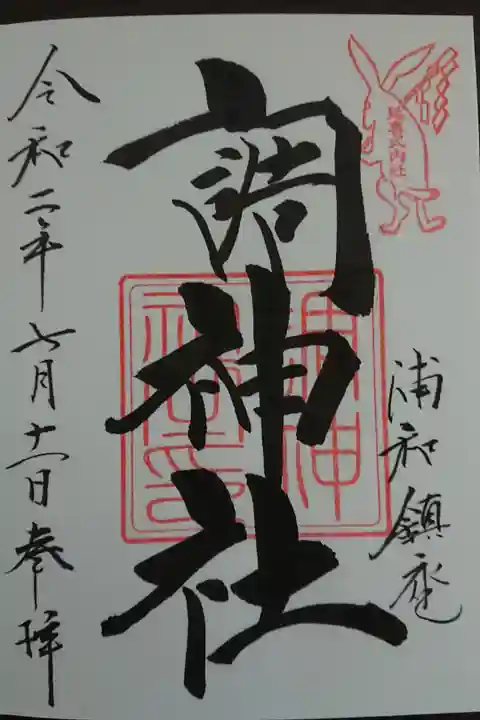 延喜式内社
浦和鎮座
調神社
令和二年七月十一日奉拝